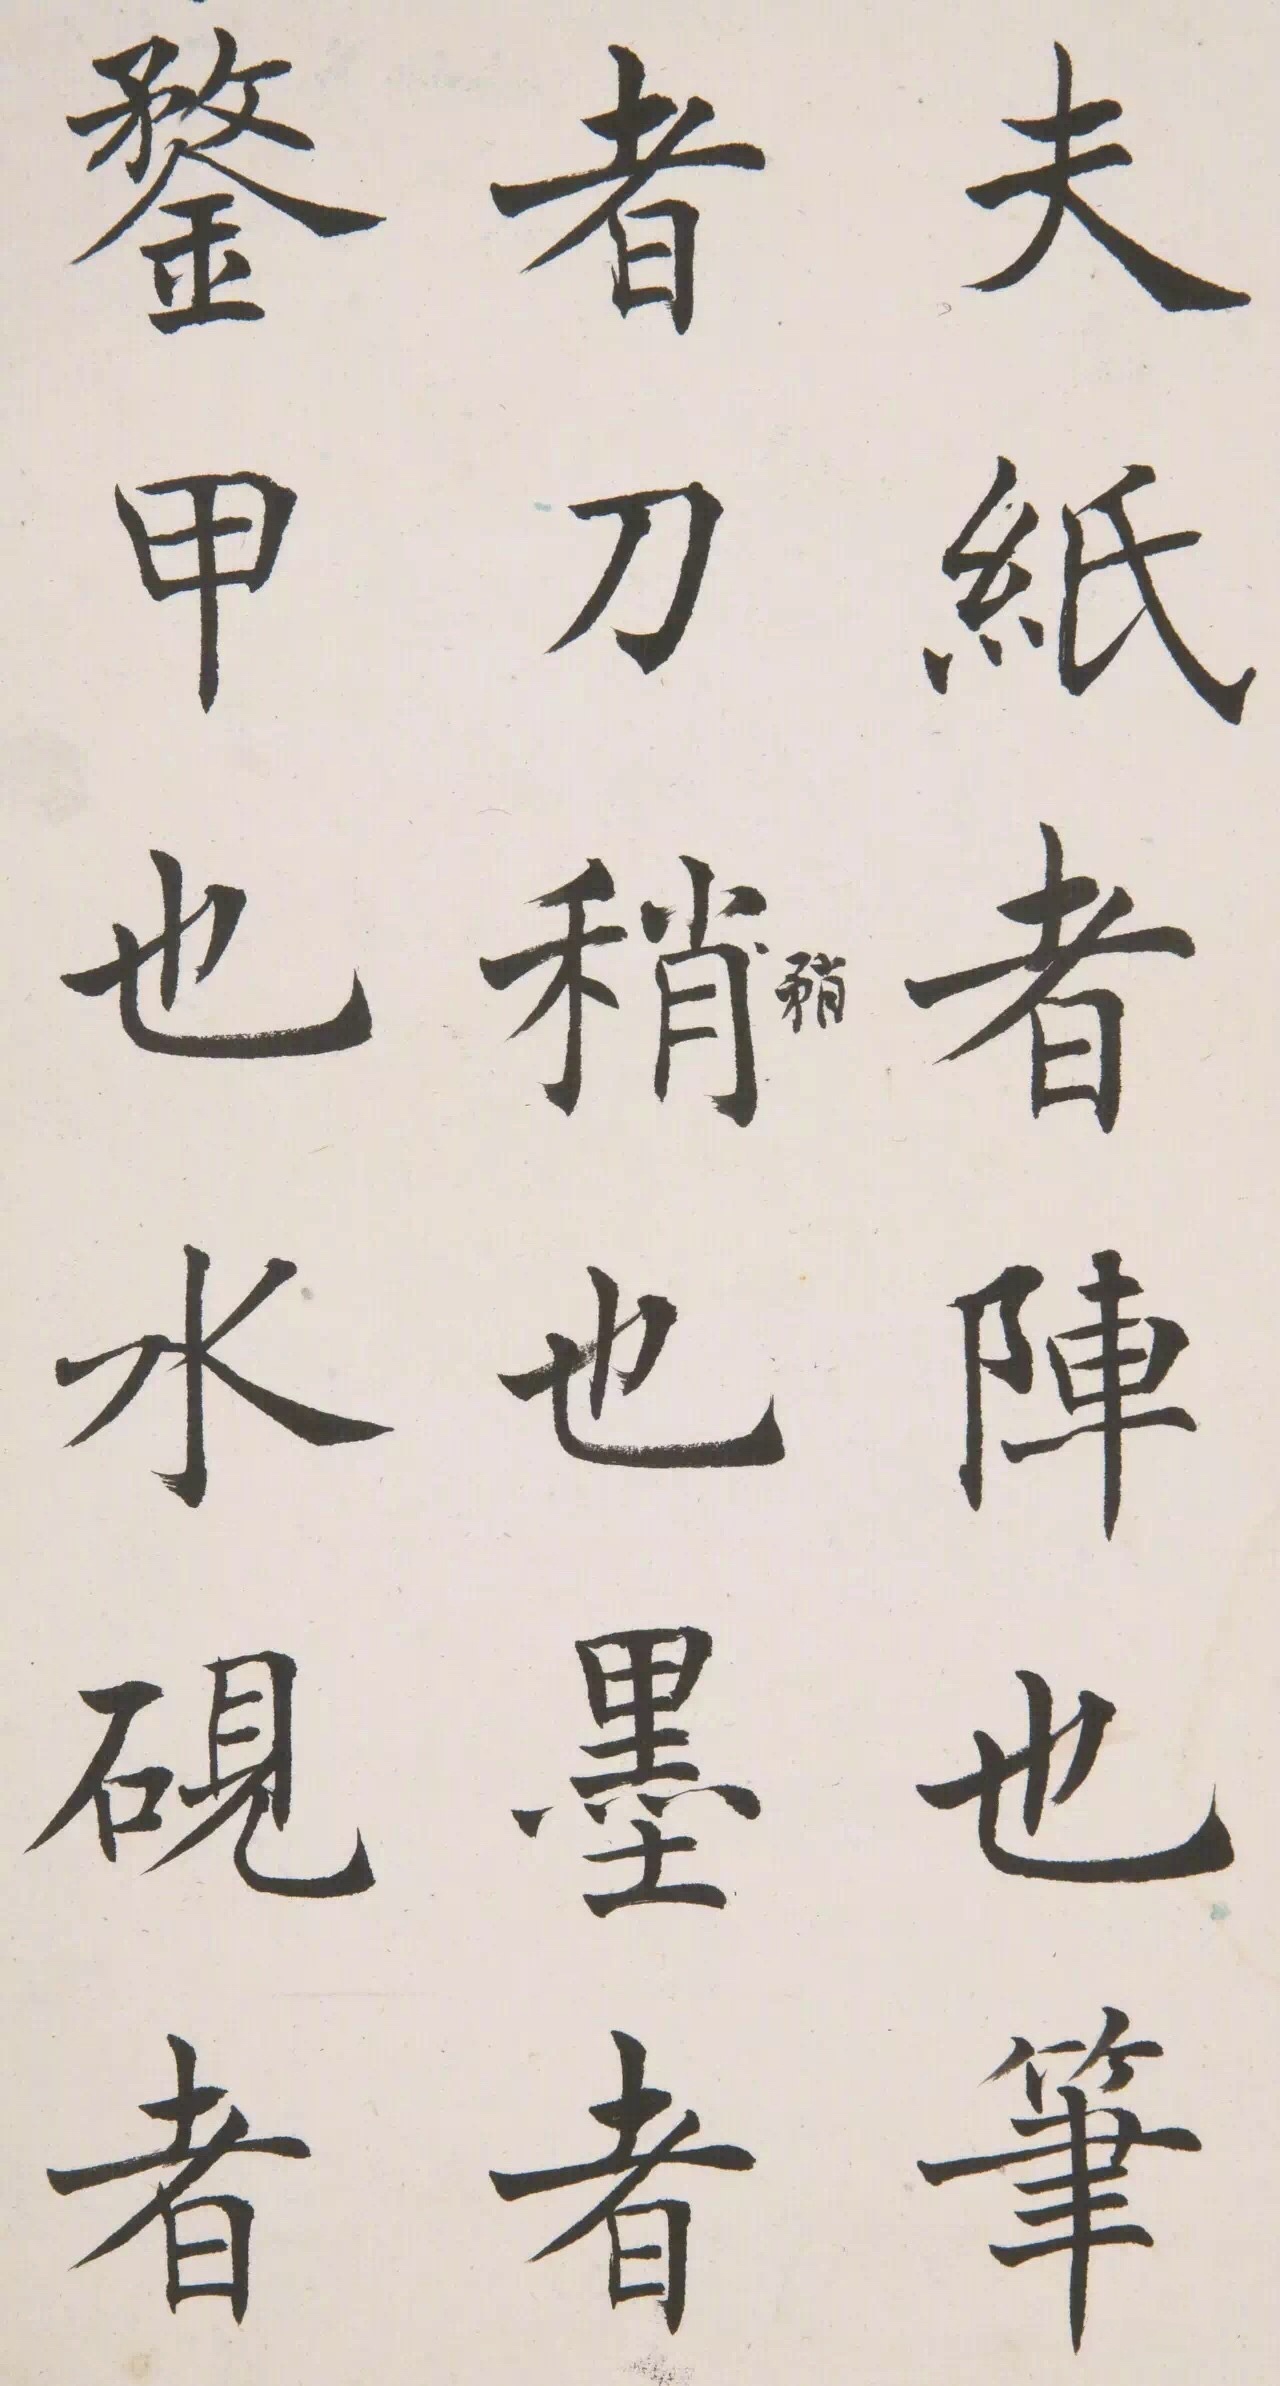 夫紙者陣也筆
者刀稍矟也墨者
鍪甲也水硯者